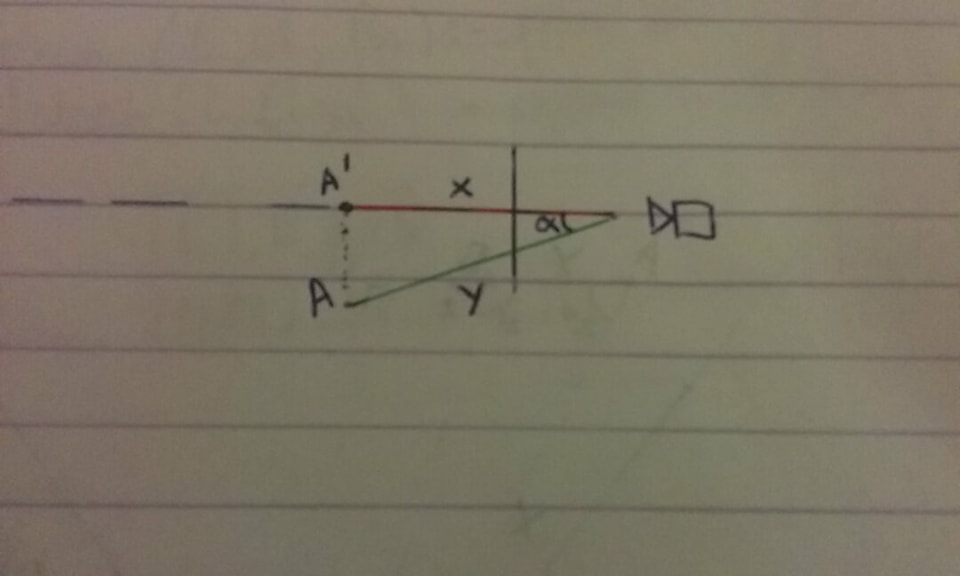 A'
x
α
A
y